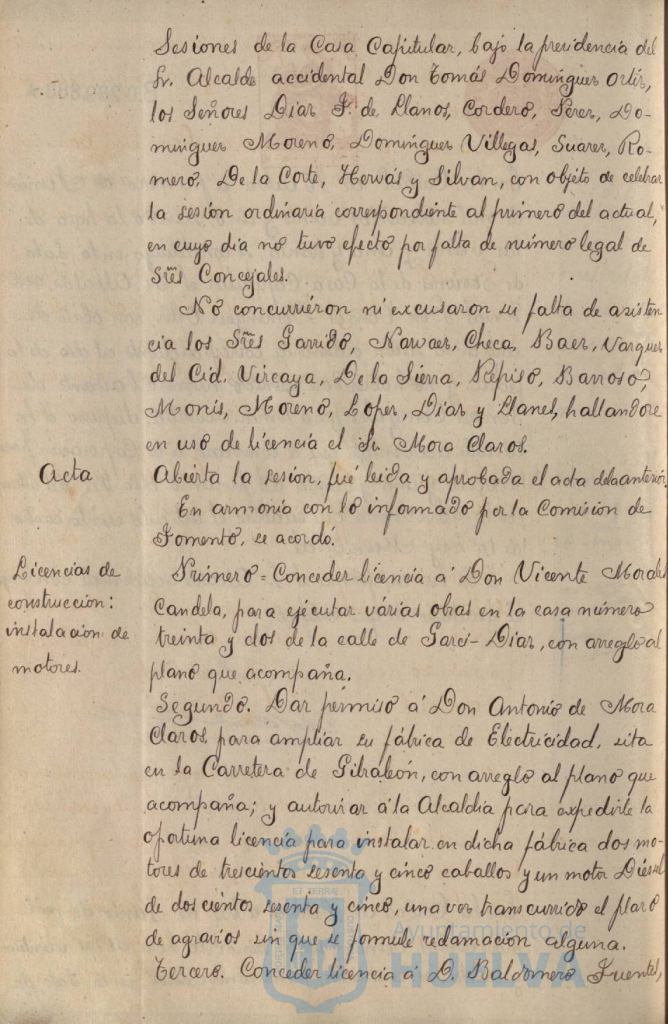 Sesiones de la Casa Capitular, bajo la presidencia del
Sr. Alcalde accidental Don Tomás Dominguez Ortiz,
los Señores Diaz F. de Llanos, Cordero, Perez, Do-
minguez Moreno, Dominguez Villegas, Suarez, Ro-
mero, De la Corte, Hervás y Silvan, con objeto de celebrar
la sesión ordinaria correspondiente al primero del actual,
en cuyo dia no tuvo efecto por falta de número legal de
Sres Concejales.
No concurrieron ni excusaron su falta de asisten
cia los Sres Garrido, Narvaez, Checa, Baez, Vazquez
del Cid, Vizcaya, De la Sierra, Repiso, Barroso,
Monis, Moreno, Lopez, Diaz y Llanes, hallandose
en uso de licencia el Sr. Mora Claros.
Acta
Abierta la sesion, fué leida y aprobada el acta de la anterior.
En armonía con lo informado por la Comision de
Fomento, se acordó.
Licencias de
construccion:
instalacion de
motores.
Primero = Conceder licencia á Don Vicente Morales
Candela, para ejecutar várias obras en la casa número
treinta y dos de la calle de Garci-Diaz, con arreglo al
plano que acompaña.
Segundo. Dar permiso á Don Antonio de Mora
Claros, para ampliar su fábrica de Electricidad, sita
en la Carretera de Gibraleón, con arreglo al plano que
acompaña; y autorizar á la Alcaldia para expedirle la
oportuna licencia para instalar en dicha fábrica dos mo-
tores de trescientos sesenta y cinco caballos y un motor Diésel
de doscientos sesenta y cinco, una vez transcurrido el plazo
de agravios sin que se formule reclamacion alguna.
Tercero. Conceder licencia á D. Baldomero Fuentes,
Ayuntamiento de
HUELVA